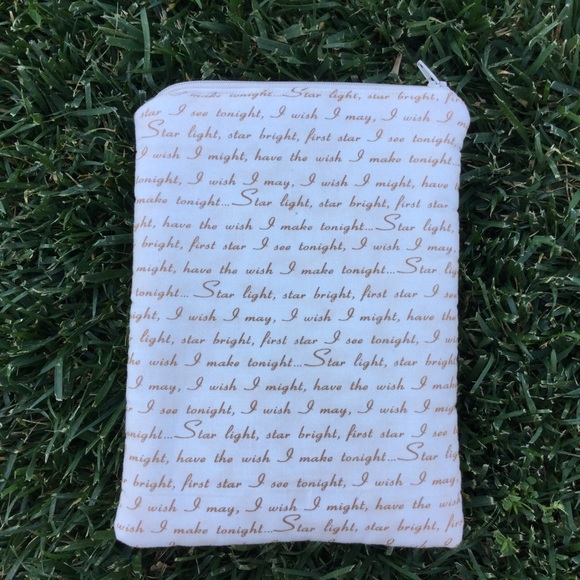 make tonight...Star light, star bright, fir
star I see tonight, I wish I may, I wish I
Star light, star bright, first star I see tonight,
I wish I might, have the wish I make tonight...
onight, I wish I may, I wish I might, have t
make tonight...Star light, star bright, first star
ght, have the wish I make tonight...Star light,
bright, first star I see tonight, I wish I may,
might, have the wish I make tonight...Star lig
tonight...Star light, star bright, first star I see
ight, I wish I may, I wish I might, have the
light, star bright, first star I see tonight, I wis
he wish I make tonight...Star light, star bright
I may, I wish I might, have the wish I mak
I see tonight, I wish I may, I wish I mig
night...Star light, star bright, first star I see
might, have the wish I make tonight...Star lig
bright, first star I see tonight, I wish I may,
wish I may, I wish I might, have the wish
I make tonight...Star light, star bright, first